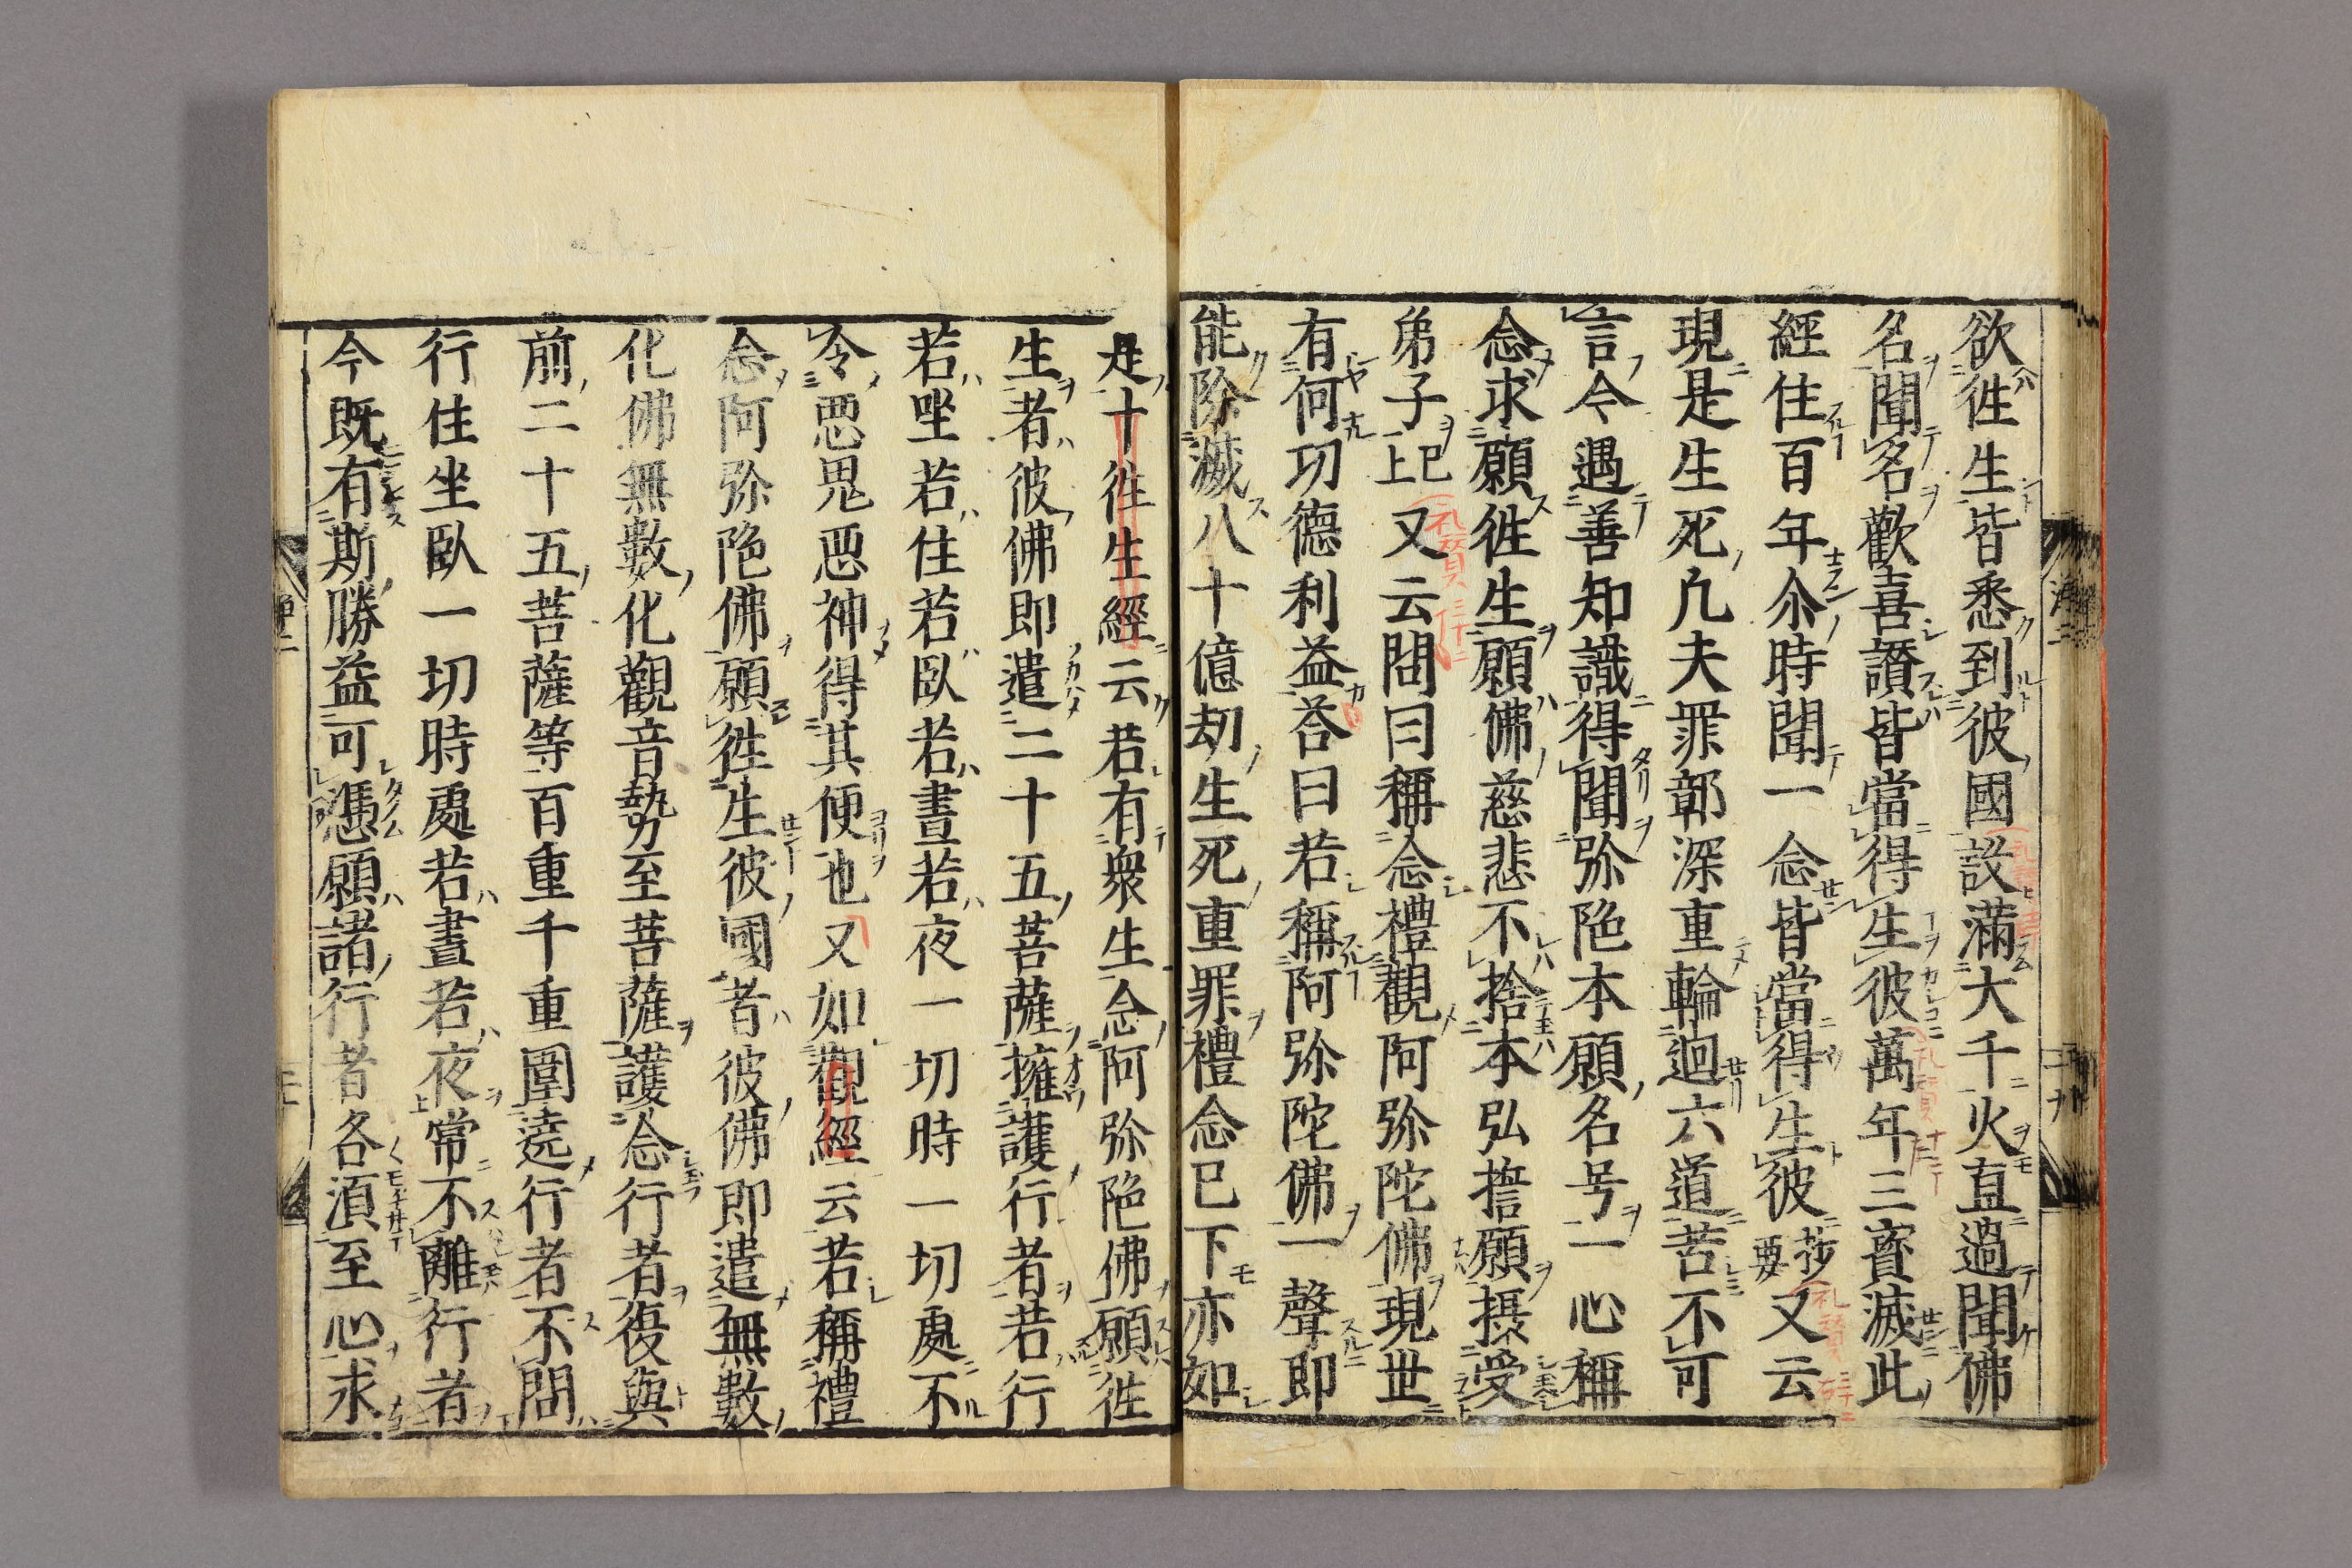 欲徃生皆悉到彼國設滿大千火直過聞佛
名聞名歡喜讚皆當得生彼萬年三寳滅此
經住百年尒時聞一念皆當得生彼抄要又云
現是生死凢夫罪鄣深重輪迴六道苦不可
言今遇善知識得聞弥陁本願名号一心稱
念求願徃生願佛慈悲不捨本弘誓願攝受
弟子已上又云問曰稱念禮觀阿弥陀佛現世
有何功德利益荅曰若稱阿弥陀佛一聲即
能除滅八十億劫生死重罪禮念已下亦如
是十徃生經云若有衆生念阿弥陁佛願徃
生者彼佛即遣二十五菩薩擁護行者若行
若坐若住若臥若晝若夜一切時一切處不
令惡鬼惡神得其便也又如觀經云若稱禮
念阿弥陁佛願徃生彼國者彼佛即遣無數
化佛無數化觀音勢至菩薩護念行者復與
前二十五菩薩等百重千重圍遶行者不問
行住坐臥一切時處若晝若夜常不離行者
今既有斯勝益可憑願諸行者各湏至心求